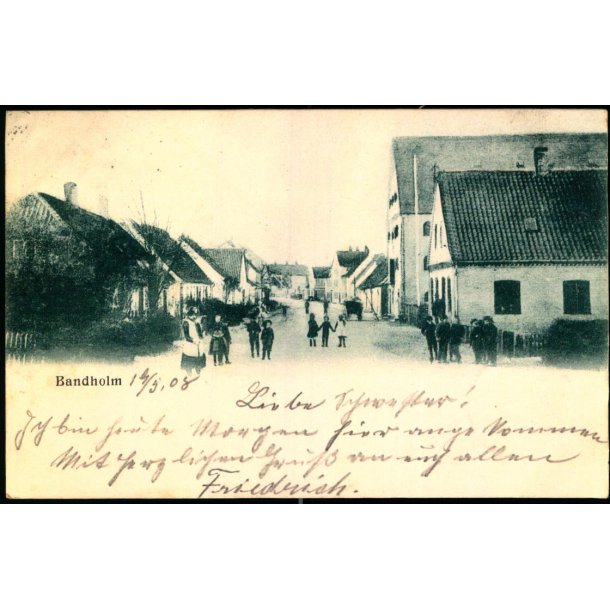 Bandholm 14/5.08
Liebe Schwester!
Ich bin heute Morgen hier angekommen
Mit herzlichen Gruß an euch allen
Friedrich.